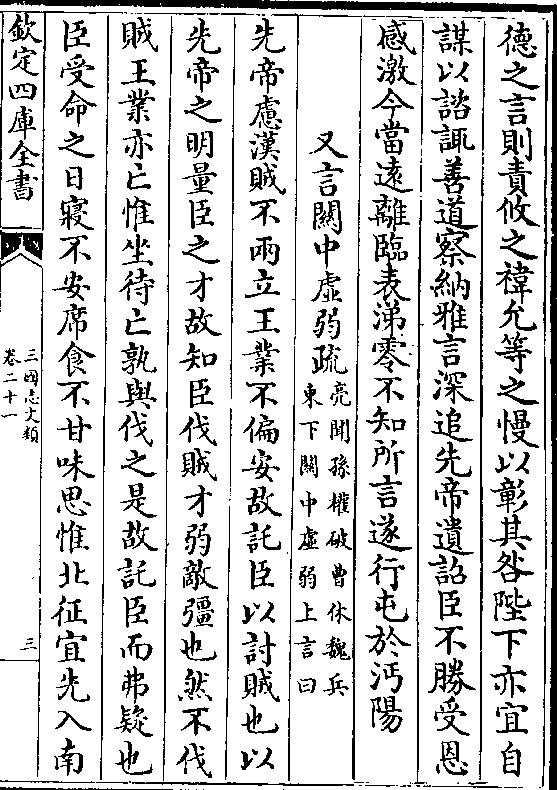 德之言則責攸之禕允等之慢以彰其咎陛下亦宜自
謀以諮諏善道察納雅言深追先帝遺詔臣不勝受恩
感激今當遠離臨表涕零不知所言遂行屯於沔陽
又言關中虛弱疏
亮聞孫權破曹休魏兵
東下關中虛弱上言曰
先帝慮漢賊不兩立王業不偏安故託臣以討賊也以
先帝之明量臣之才故知臣伐賊才弱敵彊也然不伐
賊王業亦亡惟坐待亡孰與伐之是故託臣而弗疑也
臣受命之日寢不安席食不甘味思惟北征宜先入南
欽定四庫全書
三國志文類
卷二十一
三